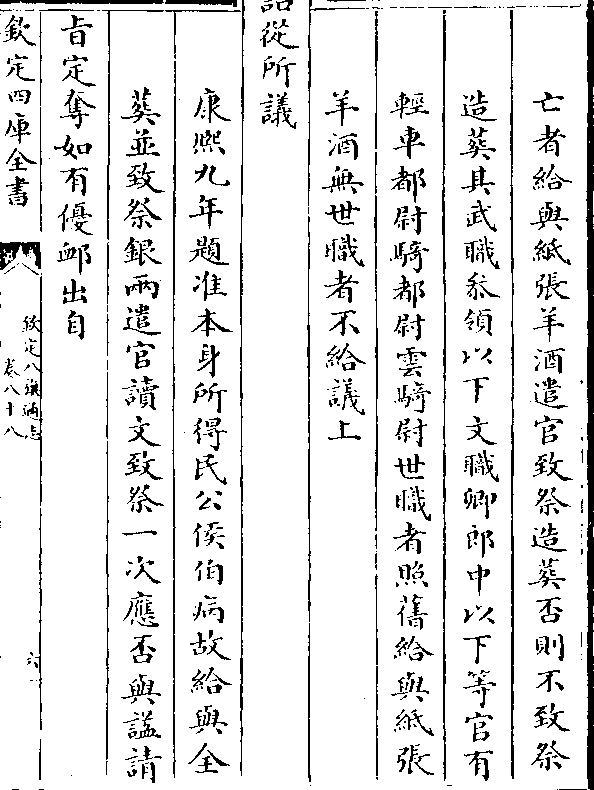 亡者給與紙張羊酒遣官致祭造葬否則不致祭
造葬其武職叅領以下文職卿郎中以下等官有
輕車都尉騎都尉雲騎尉世職者照舊給與紙張
羊酒無世職者不給議上
從所議
康熙九年題准本身所得民公侯伯病故給與全
葬並致祭銀兩遣官讀文致祭一次應否與謚請
旨定奪如有優䘏出自
欽定四庫全書
欽定八旗通志
卷八十八
六